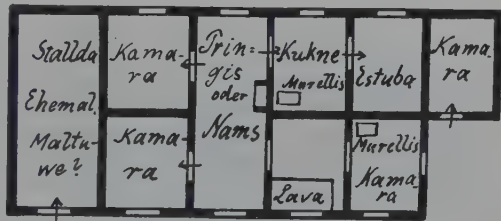 Stallda
Ehemal.
Maltu-
we?
Kama-
ra
Kama-
ra
Prin=
gis
oder
Nams
Kukne
Murellis
Lava
Estuba
Murellis
Kama-
ra
Kama-
ra